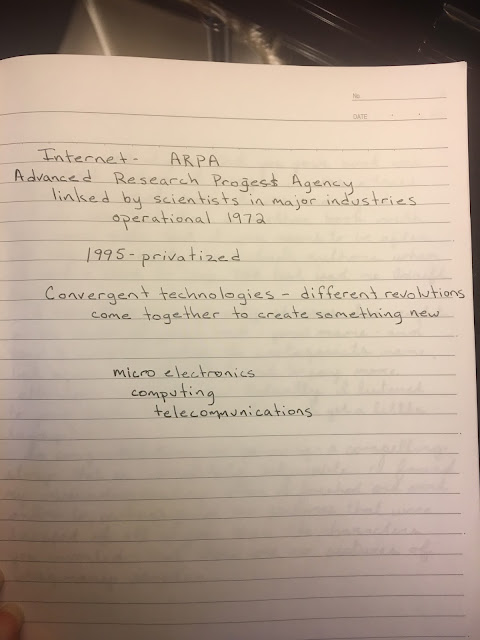 No.
DATE
Internet - ARPA
Advanced Research Progess Agency
linked by scientists in major industries
operational 1972
1995 - privatized
Convergent technologies - different revolutions
come together to create something new
micro electronics
computing
telecommunications